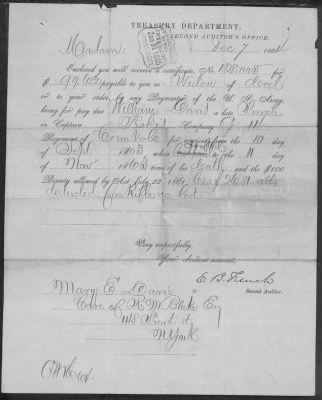 TREASURY DEPARTMENT,
SECOND AUDITOR'S OFFICE.
Madam: Dec 7, 1864
Enclosed you will receive a certificate, No. for
$ 99.62 payable to you as Widow of Decd
or to your order, by any Paymaster of the U. S. Army,
being for pay due William Davis a late Private
in Captain Company G, 11"
Regiment of Conn Vols: for from the 10 day
of Sept. 1863, when to the 11 day
of Nov 1863 time of his Death and the $100
Bounty allowed by Act July 22, 1861, less
deducted for Rifle &c
Very respectfully,
Your obedient servant,
E B French
Second Auditor.
Mary E Davis
Care of R W Blake Esq
Pine St
N York